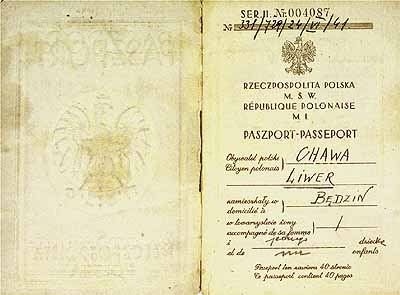 PASZPORT
SER. II. № 004087
№ 331/729/24/VI/41
RZECZPOSPOLITA POLSKA
M. S. W.
RÉPUBLIQUE POLONAISE
M. I.
PASZPORT-PASSEPORT
Obywatel polski
Citoyen polonais
CHAWA
LIWER
zamieszkały w
domicilié à
BĘDZIN
w towarzystwie żony
accompagné de sa femme
1
i
et de
dziećka
enfants
Paszport ten zawiera 40 stronic
Ce passeport contient 40 pages